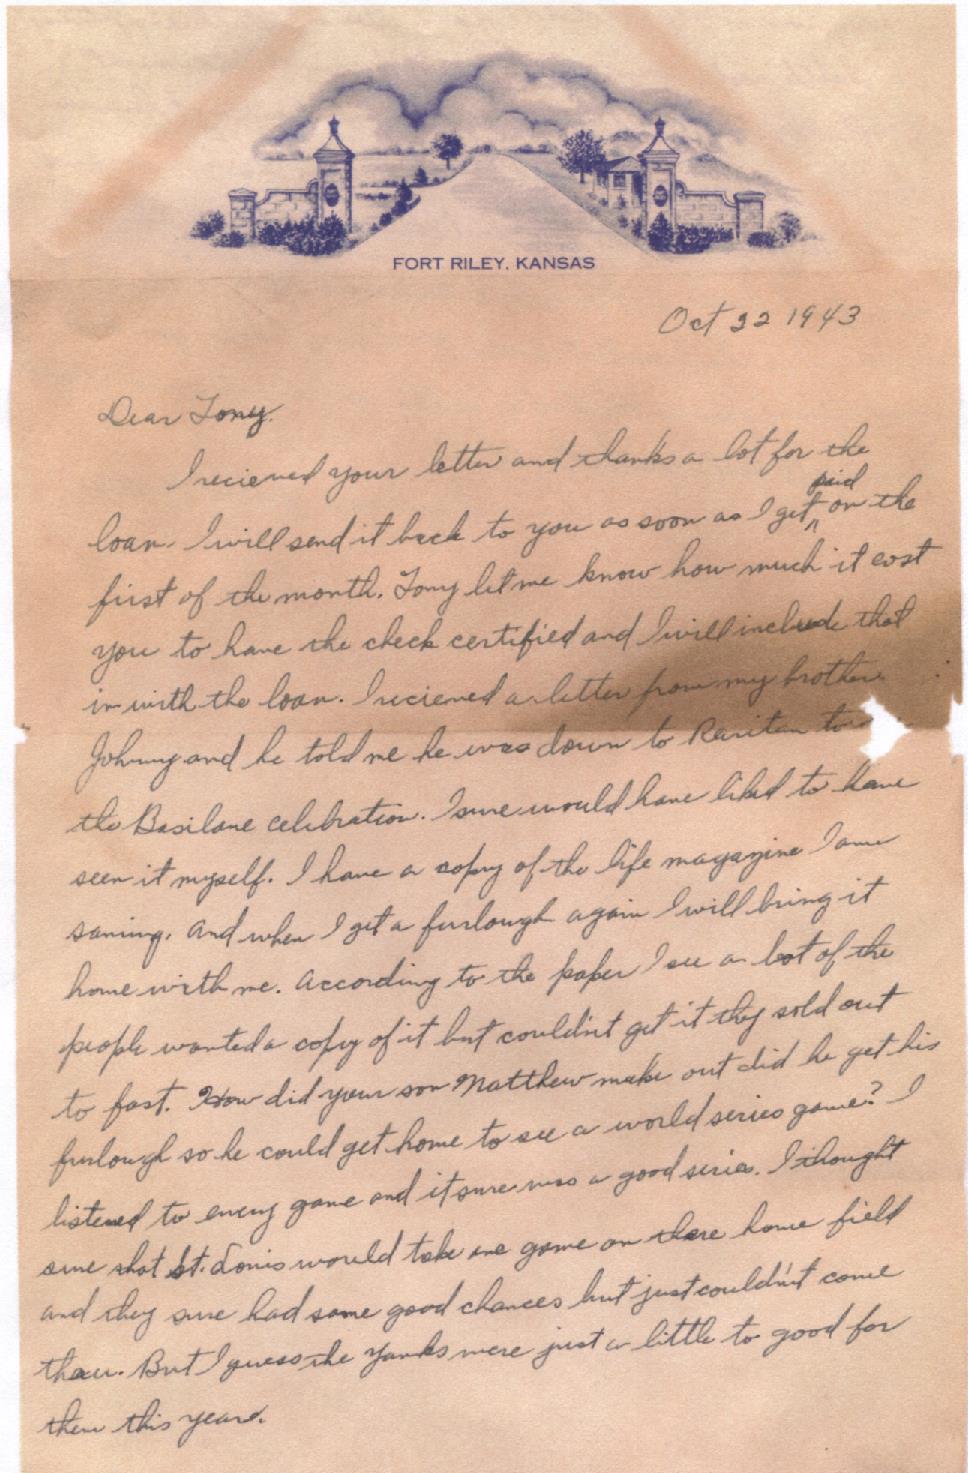 FORT RILEY, KANSAS
Oct 22 1943
Dear Tony.
I recieved your letter and thanks a lot for the
paid
loan. I will send it back to you as soon as I get ^ on the
first of the month. Tony let me know how much it cost
you to have the check certified and I will include that
in with the loan. I recieved a letter from my brother
Johnny and he told me he was down to Raritan to
the Basilone celebration. I sure would have liked to have
seen it myself. I have a copy of the life magazine I am
saving. And when I get a furlough again I will bring it
home with me. According to the paper I see a lot of the
people wanted a copy of it but couldn't get it they sold out
to fast. How did your son Matthew make out did he get his
furlough so he could get home to see a world series game? I
listened to every game and it sure was a good series. I thought
sure shot St. Louis would take one game on there home field
and they sure had some good chances but just couldn't come
thru. But I guess the Yanks were just a little to good for
them this year.